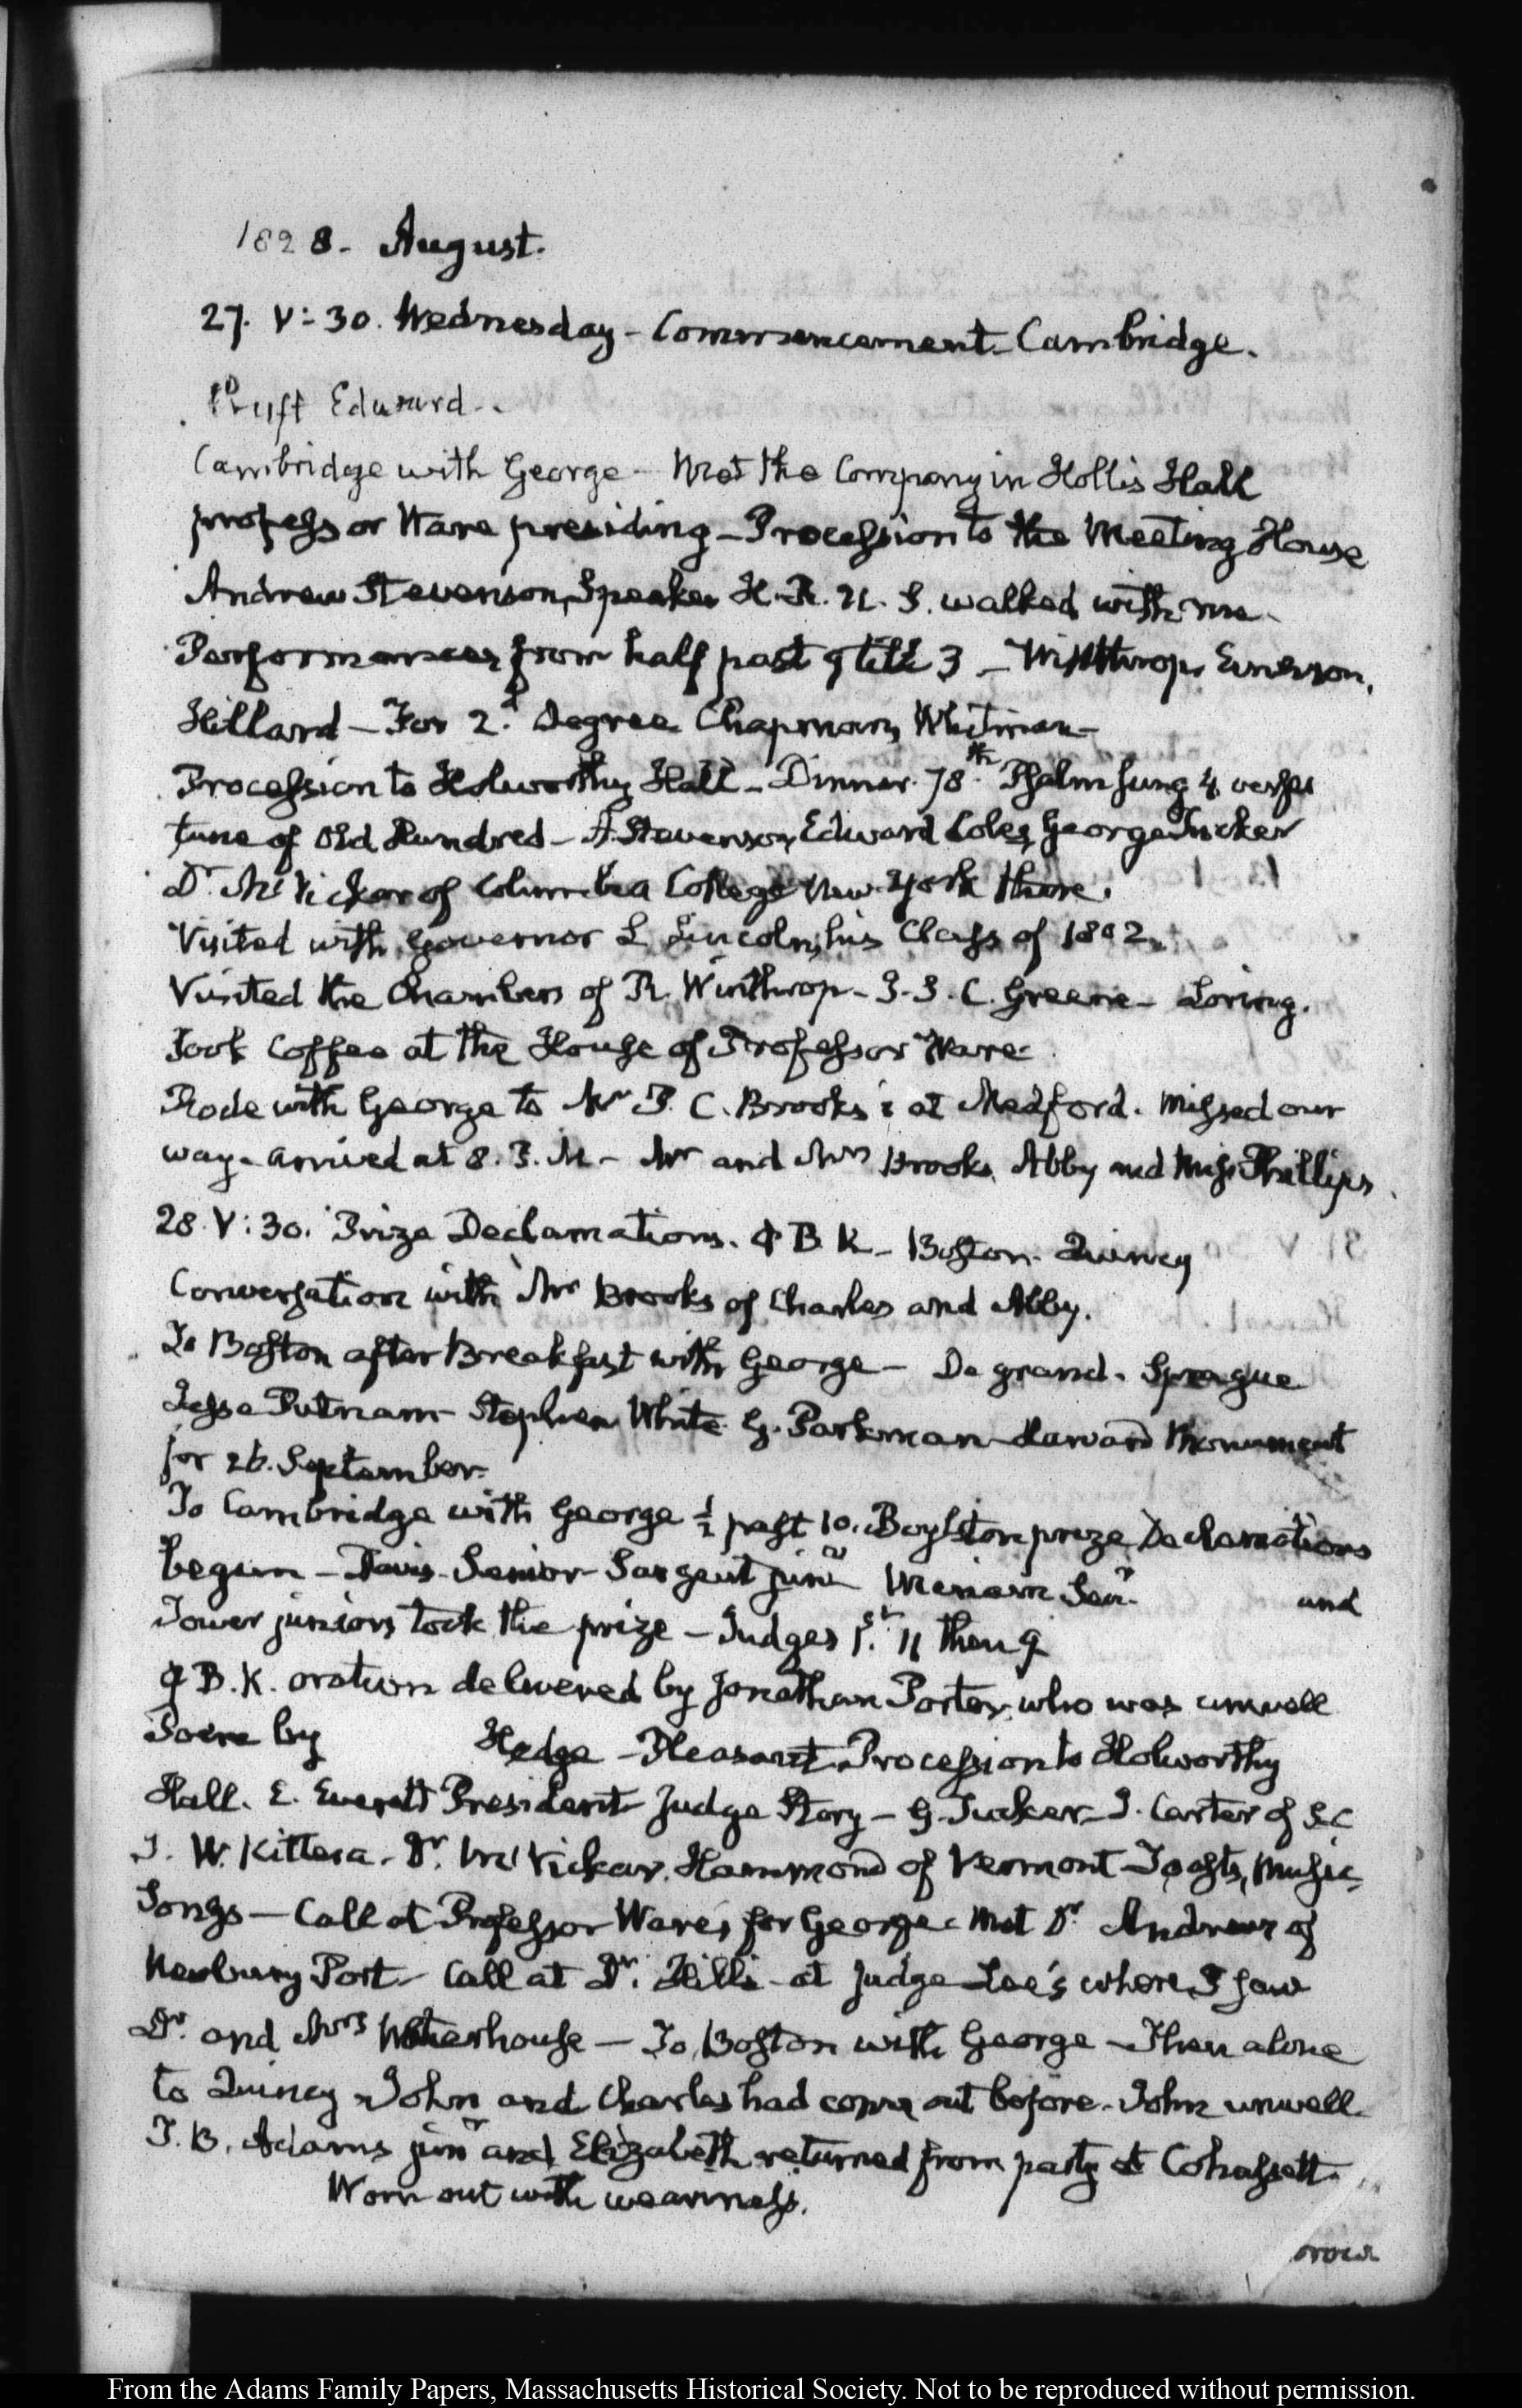 1828. August.
27. V:30. Wednesday - Commencement - Cambridge.
Cruft Edward.
Cambridge with George - Met the Company in Hollis Hall
professor Ware presiding - Procession to the Meeting House
Andrew Stevenson, Speaker H.R. U.S. walked with me -
Performances from half past 9 till 3 - Winthrop, Emerson,
Hillard - For 2.d Degree Chapman, Whitman -
Procession to Holworthy Hall - Dinner. 78th. Psalm sung 4 verses
tune of Old Hundred - A. Stevenson, Edward Coles, George Tucker
Dr. McVickar of Columbia College New-York there.
Visited with Governor L. Lincoln, his Class of 1802.
Visited the Chambers of R. Winthrop - J.S.C. Greene - Loring.
Took Coffee at the House of Professor Ware
Rode with George to Mr P. C. Brooks's at Medford. Missed our
way - arrived at 8. P.M. - Mr and Mrs Brooks, Abby and Miss Phillips
28. V:30. Prize Declamations. Φ B K - Boston - Quincy
Conversation with Mr Brooks of Charles and Abby.
To Boston after Breakfast with George - De grand. Sprague
Jesse Putnam - Stephen White - G. Parkman - Harvard Monument
for 26. September.
To Cambridge with George ½ past 10. Boylston prize Declamations
begun - Davis Senior - Sargent junr Senr. and
Tower juniors took the prize - Judges 1st. 11 then 9
Φ B.K. oration delivered by Jonathan Porter, who was unwell
Poem by Hedge - Pleasant. Procession to Holworthy
Hall. E. Everett President - Judge Story - G. Tucker - J. Carter of S.C
T. W. Kittera - Dr. McVickar. Hammond of Vermont - Toasts, Music,
Songs - Call at Professor Ware's for George - Met Dr Andrews of
Newbury Port - Call at Dr. Hill's - at Judge Lee's where I saw
Dr. and Mrs Waterhouse - To Boston with George - Then alone
to Quincy - John and Charles had come out before - John unwell.
T. B. Adams junr and Elizabeth returned from party at Cohassett.
Worn out with weariness.
From the Adams Family Papers, Massachusetts Historical Society. Not to be reproduced without permission.